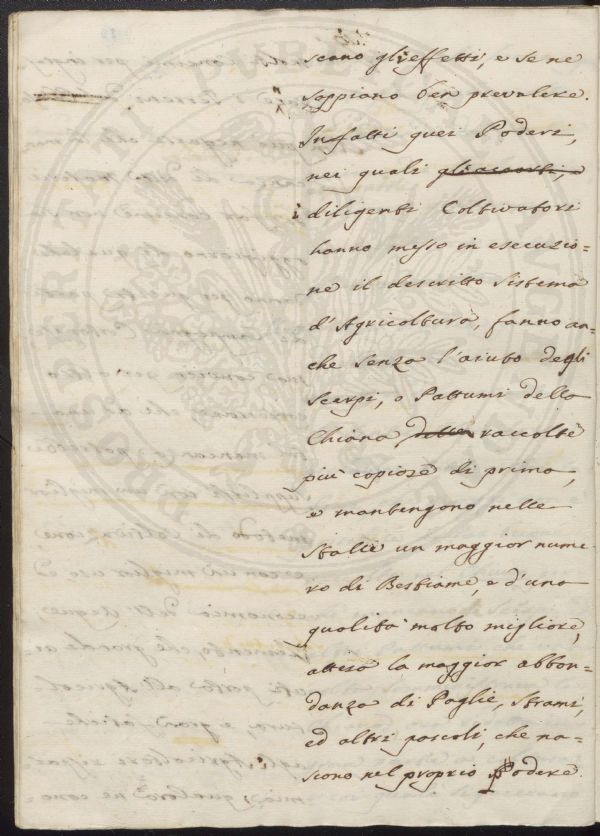 scano gli effetti, e se ne
sappiano ben prevalere.
Infatti quei Poderi,
nei quali gli accorti, e
i diligenti Coltivatori
hanno messo in esecuzio=
ne il descritto sistema
d'Agricoltura, fanno an=
che senza l'aiuto degli
Scarpi, o Pattumi della
Chiana delle raccolte
più copiose di prima,
e mantengono nelle
stalle un maggior nume=
ro di Bestiame, e d'una
qualità molto migliore,
attesa la maggior abbon=
danza di Paglie, strami,
ed altri pascoli, che na=
scono nel proprio Podere